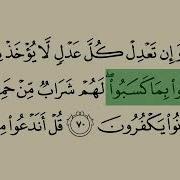 وَإِن تَعْدِلْ كُلَّ عَدْلٍ لَّا يُؤْخَذْ
وا۟ بِمَا كَسَبُوا۟ۖ لَهُمْ شَرَابٌ مِّنْ حَمِ
نُوا۟ يَكْفُرُونَ ٧٠ قُلْ أَنَدْعُوا۟ مِ